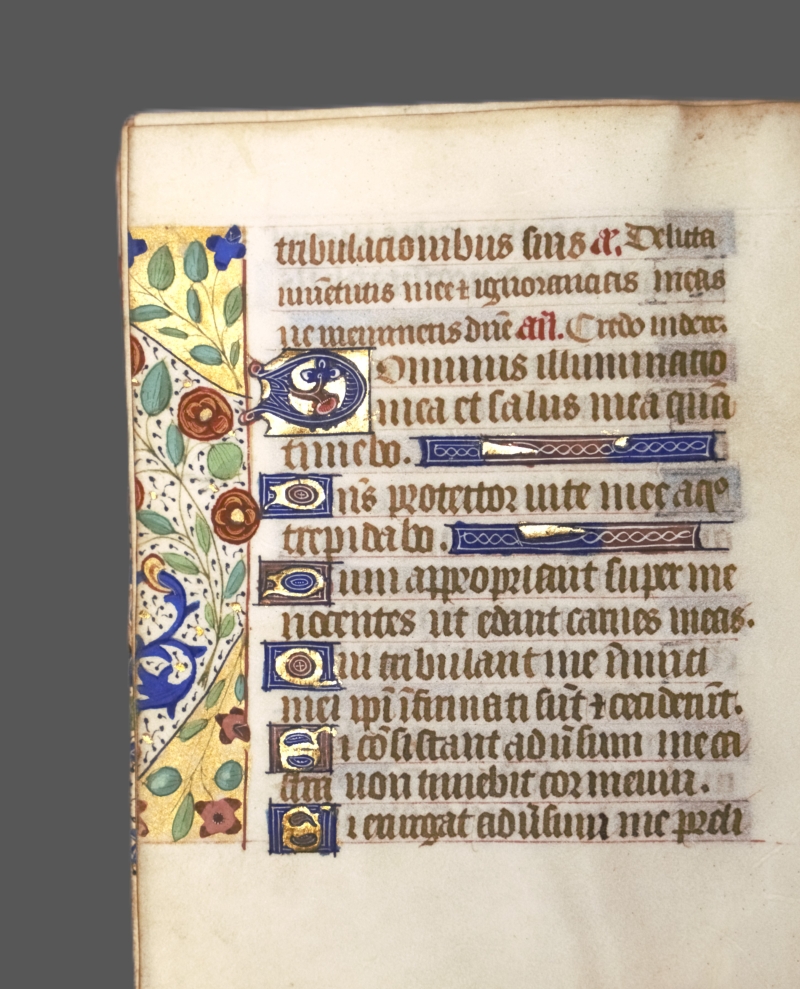 tribulacionibus suis. ã. Delicta
iuuētutis mee ⁊ ignorancias meas
ne memineris dn̄e añ. Credo videre.
Dominus illuminatio
mea et salus mea quē
timebo.
Dn̄s protector uite mee a q°
trepidabo.
Dum appropriant super me
nocentes ut edant carnes meas.
Qui tribulant me inimici
mei ipi īfirmati sūt ⁊ ceciderūt.
Si cōsistant adūsum me ca
stra non timebit cor meum.
Si exurgat adūsum me preli